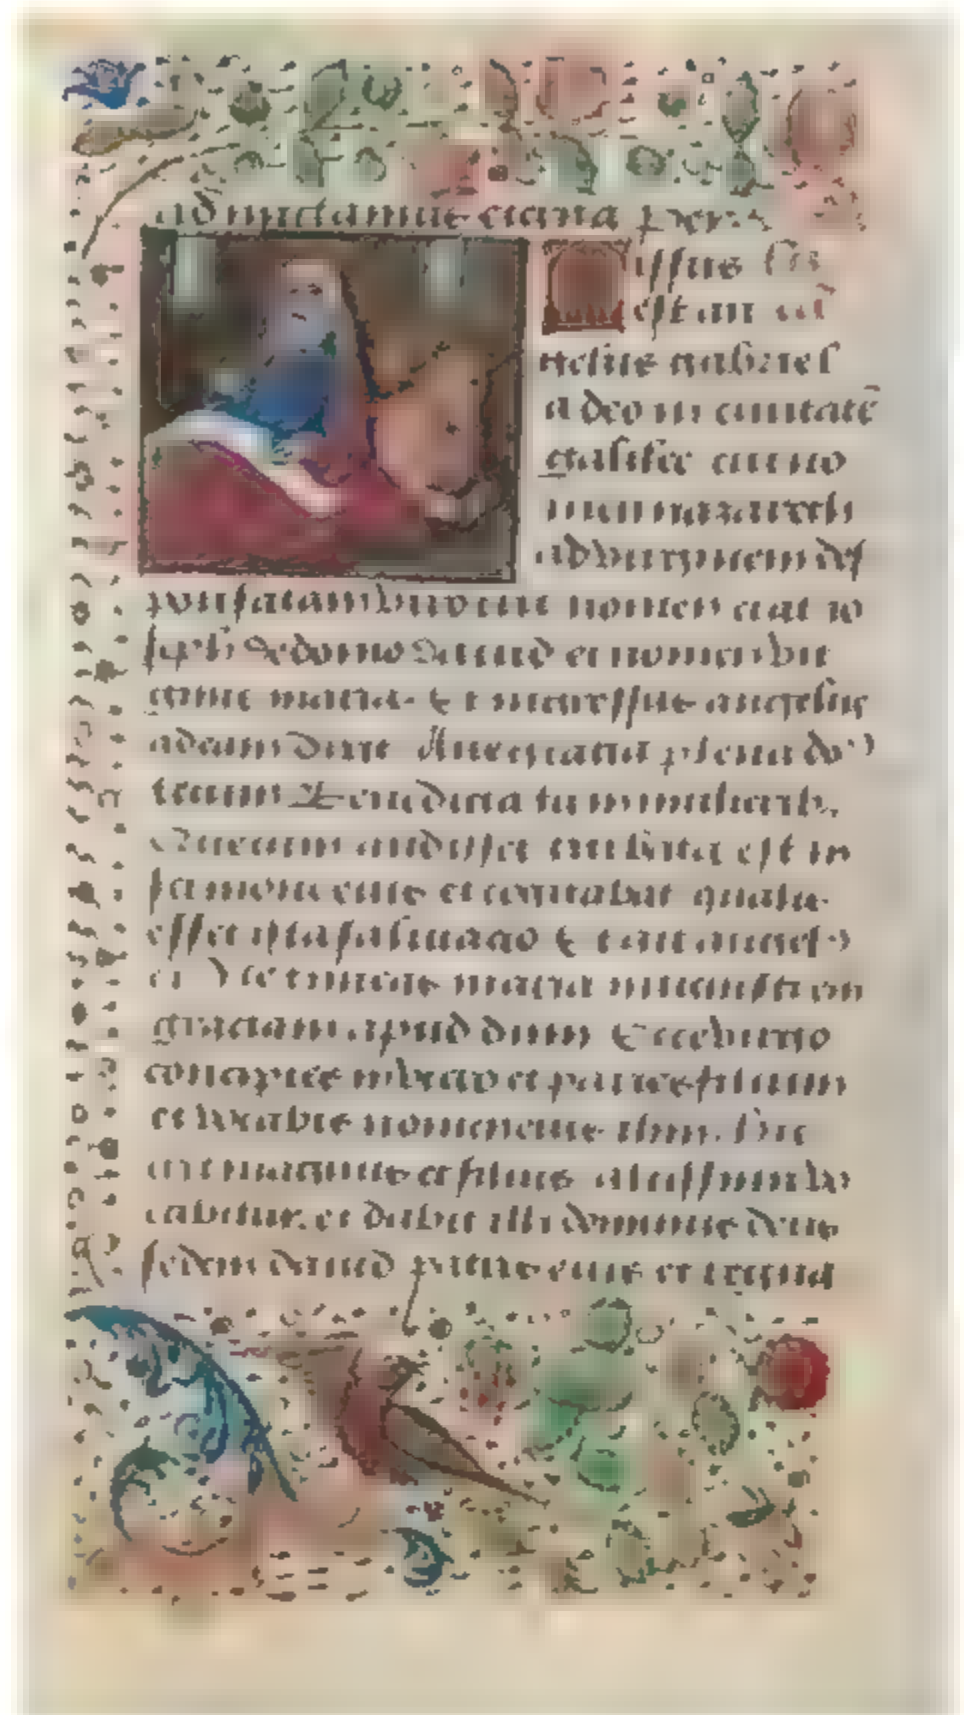 ad eterna
issus
est an
gelus gabriel
a deo in ciuitatē
galilee cui no
men nazareth
ad uirginem des
ponsatam uiro cui nomen erat io
seph de domo dauid et nomen vir
ginis maria. Et ingressus angelus
ad eam dixit Aue gracia plena do
tecum Benedicta tu in mulierib,
Que cum audisset turbata est in
sermone eius et cogitabat qualis
esset ista salutacio Et ait angels
ei Ne timeas maria inuenisti en
graciam apud dnm Ecce virgo
concipies in vtero et paries filium
et vocabis nomen eius ihm. Hic
erit magnus et filius altissimi vo
cabitur. et dabit illi dominus deus
sedem dauid patris eius et regna